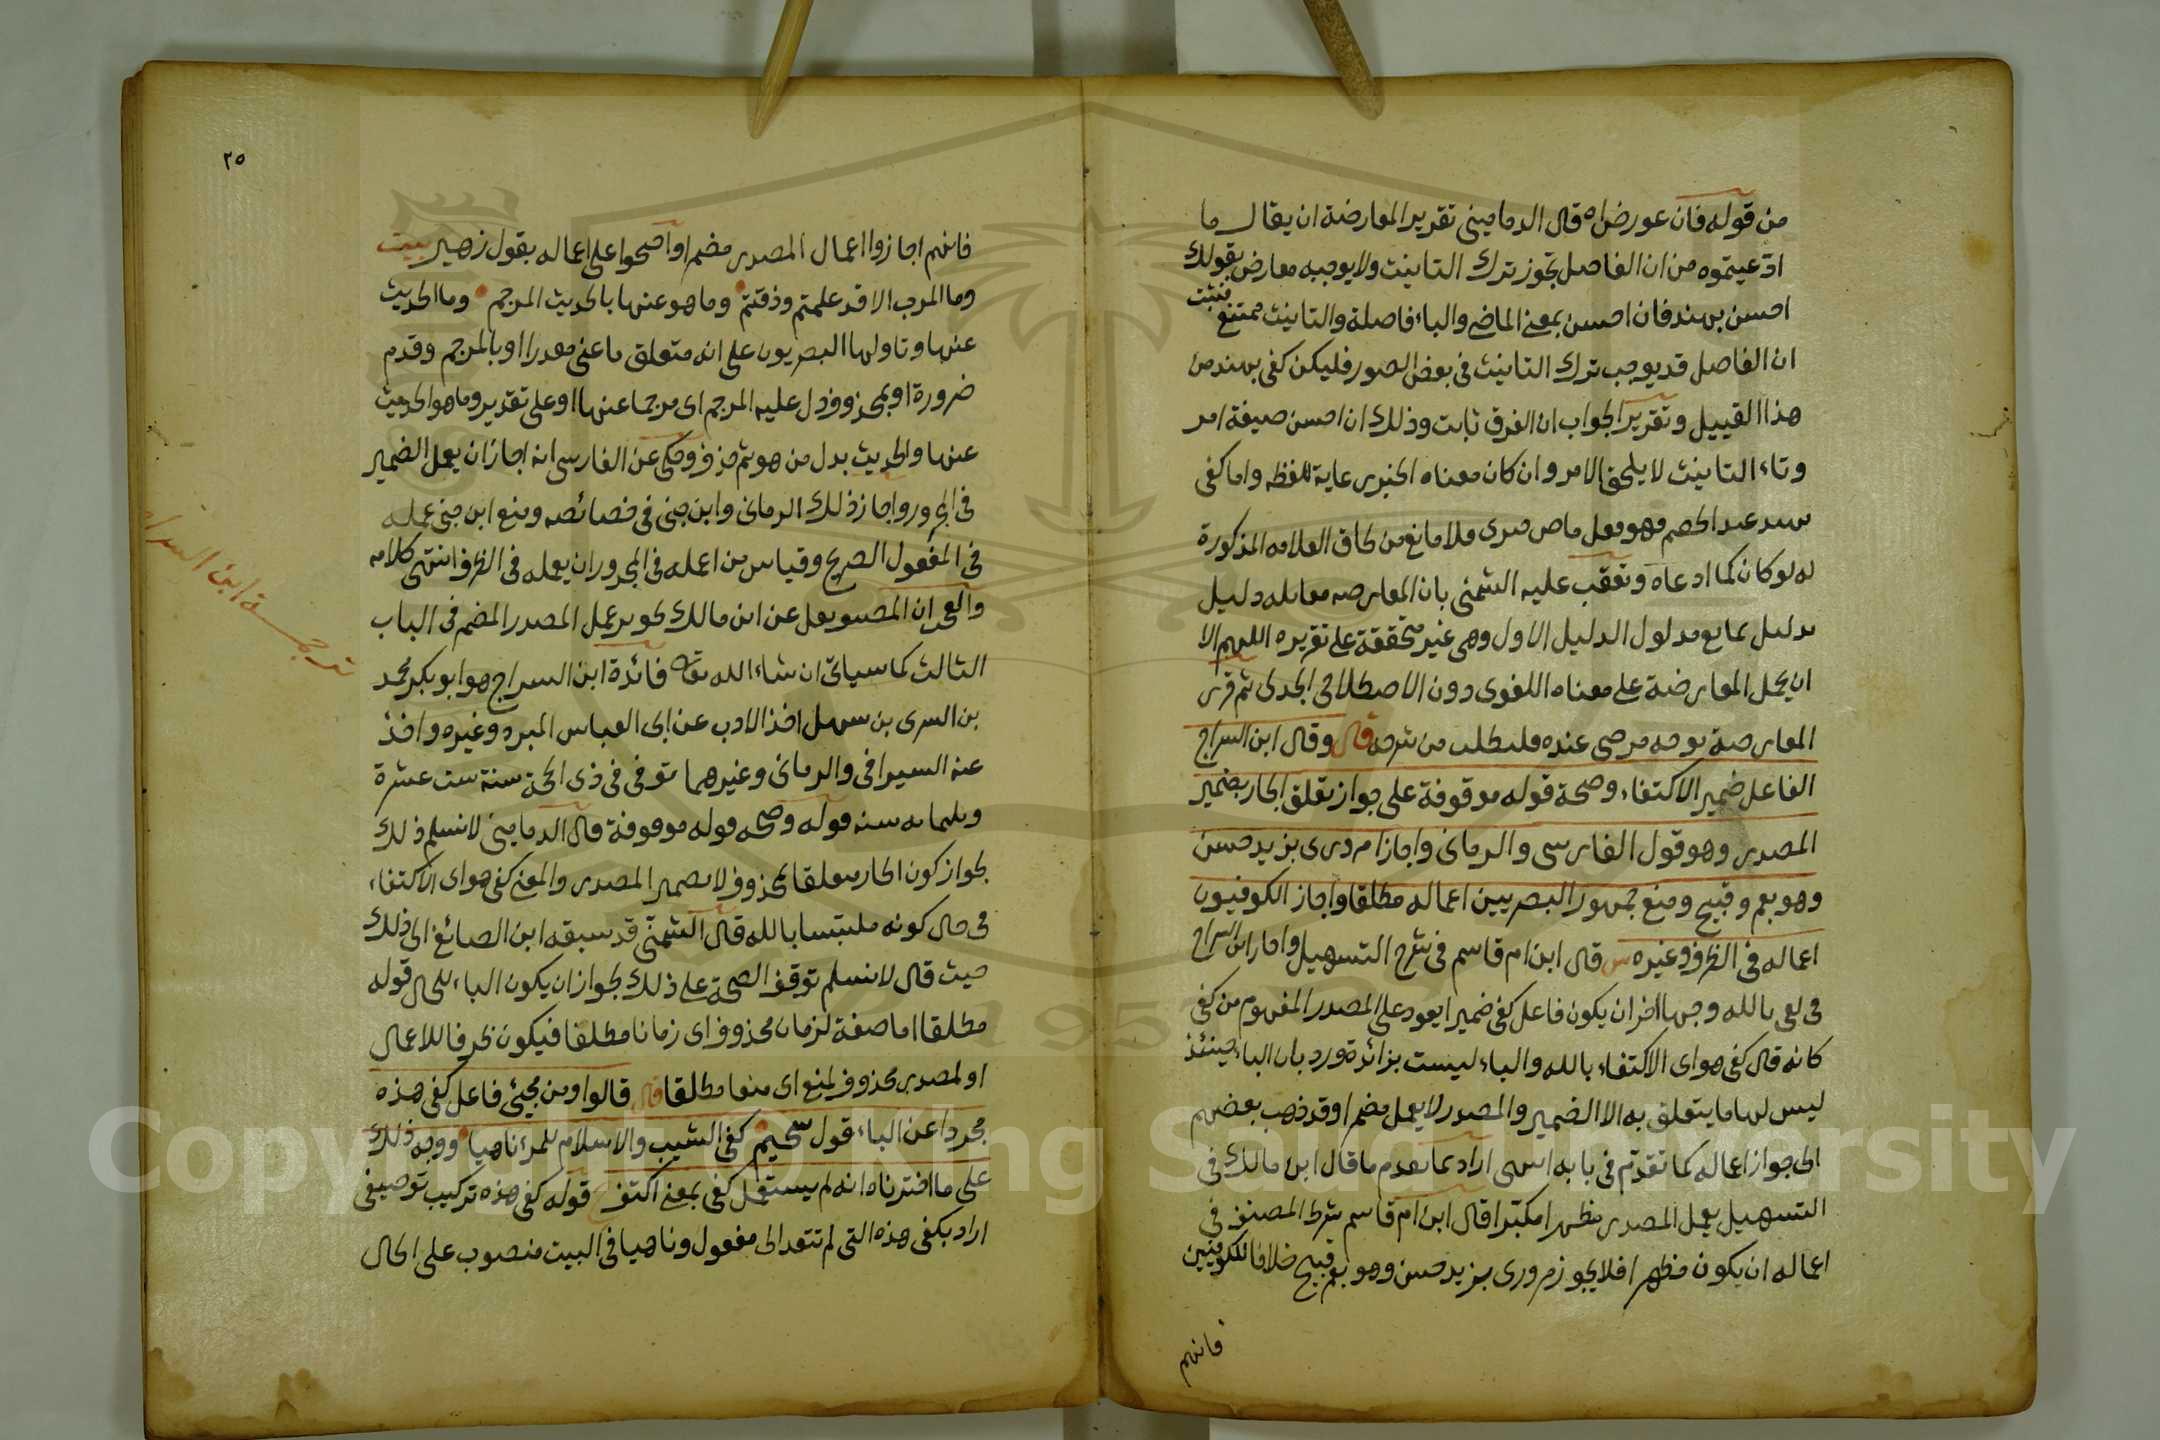 من قوله فان عورض اه قال الدماميني تقرير المعارضة ان يقال ما
ادعيتموه من ان الفاصل يجوز ترك التانيث ولا يوجبه معارض بقولك
احسن بهند فان احسن بمعنى الماضي والباء فاصلة والتانيث ممتنع فثبت
ان الفاصل قد يوجب ترك التانيث في بعض الصور فليكن كفى بهند من
هذا القبيل وتقرير الجواب ان الفرق ثابت وذلك ان احسن صيغة امر
وتاء التانيث لا يلحق الامر وان كان معناه الخبر رعاية للفظه واما كفى
عند الخصم فهو فعل ماض صرى فلا مانع من لحاق العلامه المذكورة
له لو كان كما ادعاه وتعقب عليه الشمني بان المعارضه مقابله دليل
بدليل يمانع مدلول الدليل الاول وهي غير متحققة على تقريره اللهم الا
ان يحمل المعارضة على معناه اللغوى دون الاصطلاحى الجدلى ثم قرر
المعارضة بوجه مرضى عنده فليطلب من شرحه قال وقال ابن السراج
الفاعل ضمير الاكتفاء وصحة قوله موقوفة على جواز تعلق الجار بضمير
المصدر وهو قول الفارسى والرمانى واجازا مرورى بزيد حسن
وهو بعمرو قبيح ومنع جمهور البصريين اعماله مطلقا واجاز الكوفيون
اعماله في الظرف وغيره س قال ابن ام قاسم في شرح التسهيل واجاز ابن السراج
في كفى بالله وجها اخر ان يكون فاعل كفى ضميرا يعود على المصدر المفهوم من كفى
كانه قال كفى هو اى الاكتفاء بالله والباء ليست بزائدة ورد بان الباء حينئذ
ليس لها ما يتعلق به الا الضمير والمصدر لا يعمل مضمرا وقد ذهب بعضهم
الى جواز اعماله كما تقدم في بابه انتهى اراد بما تقدم ما قال ابن مالك في
التسهيل يعمل المصدر مظهرا مكبرا قال ابن ام قاسم شرط المصنف في
اعماله ان يكون مظهرا فلا يجوز مرورى بزيد حسن وهو بعمرو قبيح خلافا للكوفيين
فانهم
٢٥
فانهم اجازوا اعمال المصدر مضمرا واحتجوا على اعماله بقول زهير بيت
وما الحرب الا قد علمتم وذقتم وما هو عنها بالحديث المرجم وما الحديث
عنها وتاولها البصريون على انه متعلق باعنى مقدرا او بالمرجم وقدم
ضرورة او بمحذوف دل عليه المرجم اى مرجما عنها او على تقدير وما هو الحديث
عنها والحديث بدل من هو ثم حذف وحكى عن الفارسى انه اجاز ان يعمل الضمير
في المجرور واجاز ذلك الرمانى وابن جنى في خصائصه ومنع ابن جنى عمله
في المفعول الصريح وقياس من اعمله في المجرور ان يعمله في الظرف انتهى كلامه
والعجب ان المصنف نقل عن ابن مالك تجويز عمل المصدر المضمر في الباب
الثالث كما سياتى ان شاء الله تعالى فائدة ابن السراج هو ابو بكر محمد
بن السرى بن سهل اخذ الادب عن ابى العباس المبرد وغيره واخذ
عنه السيرافى والرمانى وغيرهما توفى في ذى الحجة سنة ست عشرة
وثلثمائه سنه قوله وصحه قوله موقوفة قال الدمامينى لا نسلم ذلك
لجواز كون الجار متعلقا بمحذوف لا بضمير المصدر والمعنى كفى هو اى الاكتفاء
في حال كونه ملتبسا بالله قال الشمنى قد سبقه ابن الصائغ الى ذلك
حيث قال لا نسلم توقف الصحة على ذلك لجواز ان يكون الباء للحال قوله
مطلقا اما صفة لزمان محذوف اى زمانا مطلقا فيكون ظرفا للاعمال
او لمصدر محذوف لمنع اى منعا مطلقا قال قالوا ومن مجئ فاعل كفى هذه
مجردا عن الباء قول سحيم كفى الشيب والاسلام للمرء ناهيا ووجه ذلك
على ما اخترناه انه لم يستعمل كفى بمعنى اكتف قوله كفى هذه تركيب توصيفى
اراد بكفى هذه التى لم تتعد الى مفعول وناهيا في البيت منصوب على الحال
ترجمة ابن السراج
Copyright © King Saud University
1957